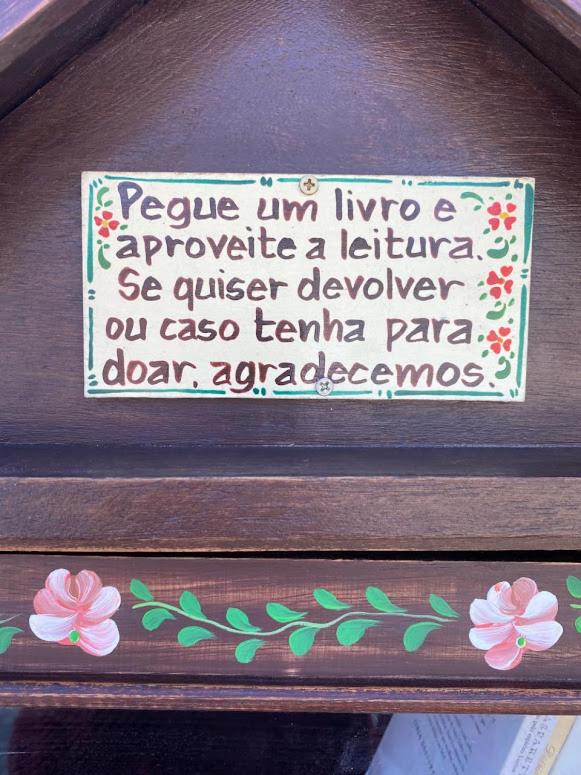 Pegue um livro e
aproveite a leitura.
Se quiser devolver
ou caso tenha para
doar, agradecemos.